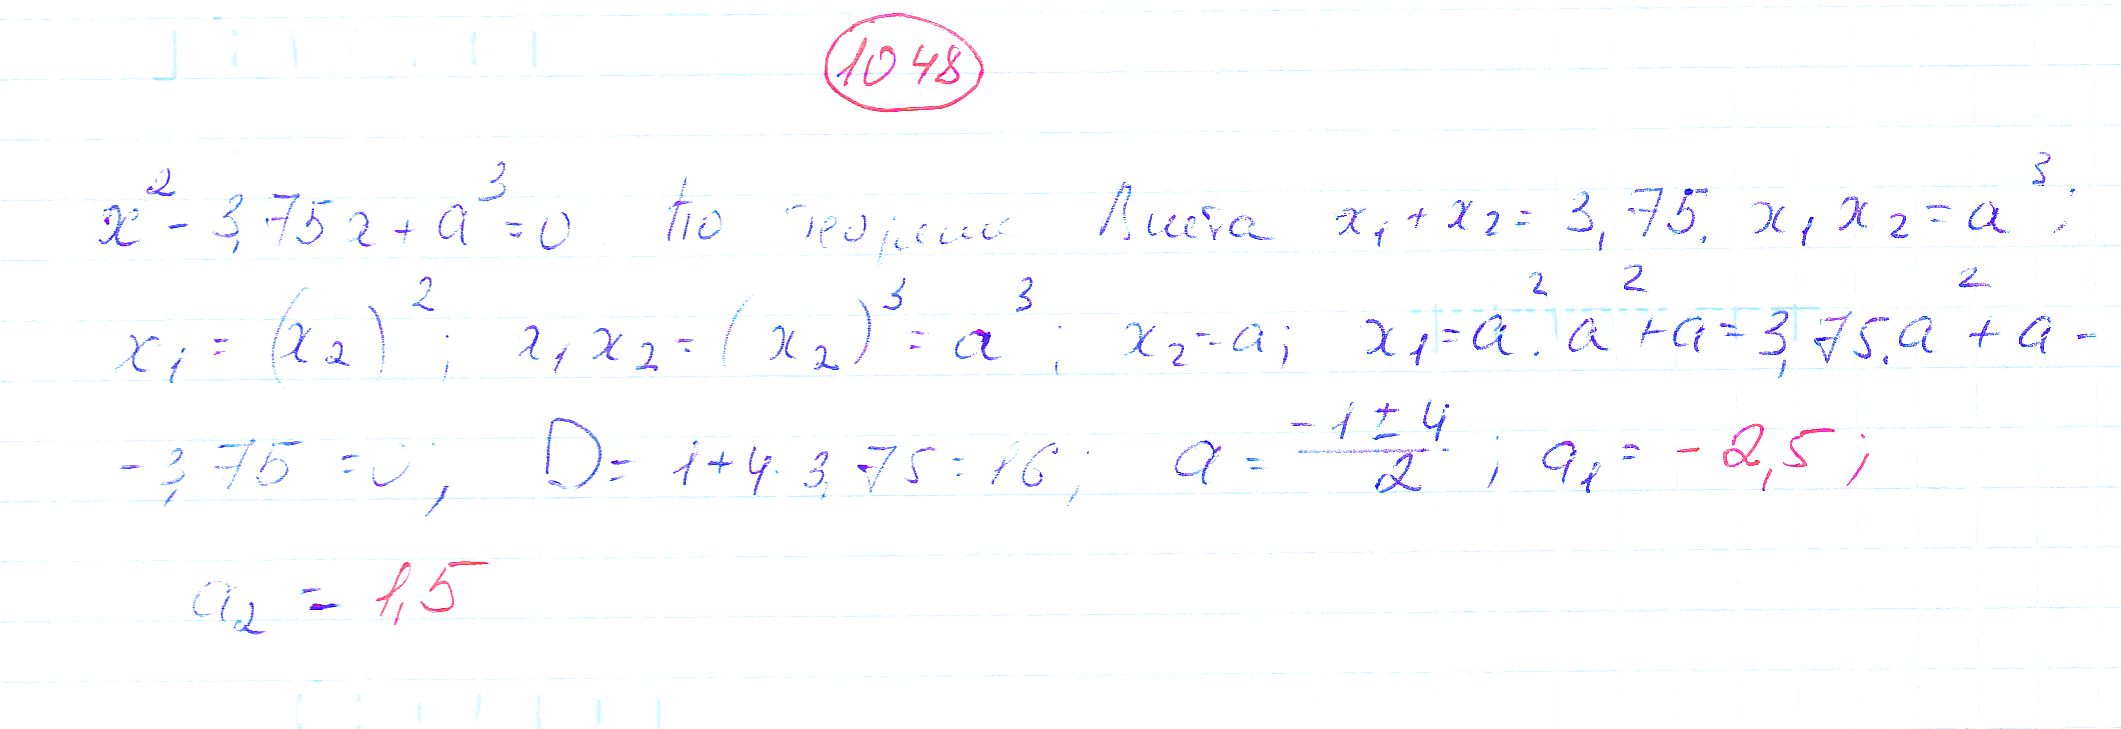 1048
x² - 3,75x + a³ = 0. По теореме Виета x₁ + x₂ = 3,75. x₁ x₂ = a³;
x₁ = (x₂)²; x₁ x₂ = (x₂)³ = a³; x₂ = a; x₁ = a². a² + a = 3,75. a² + a -
- 3,75 = 0; D = 1 + 4·3,75 = 16; a = (-1 ± 4)/2; a₁ = -2,5;
a₂ = 1,5